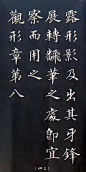 露形影及出其牙鋒
展轉翻華之處即宜
察而用之
觀形章第八